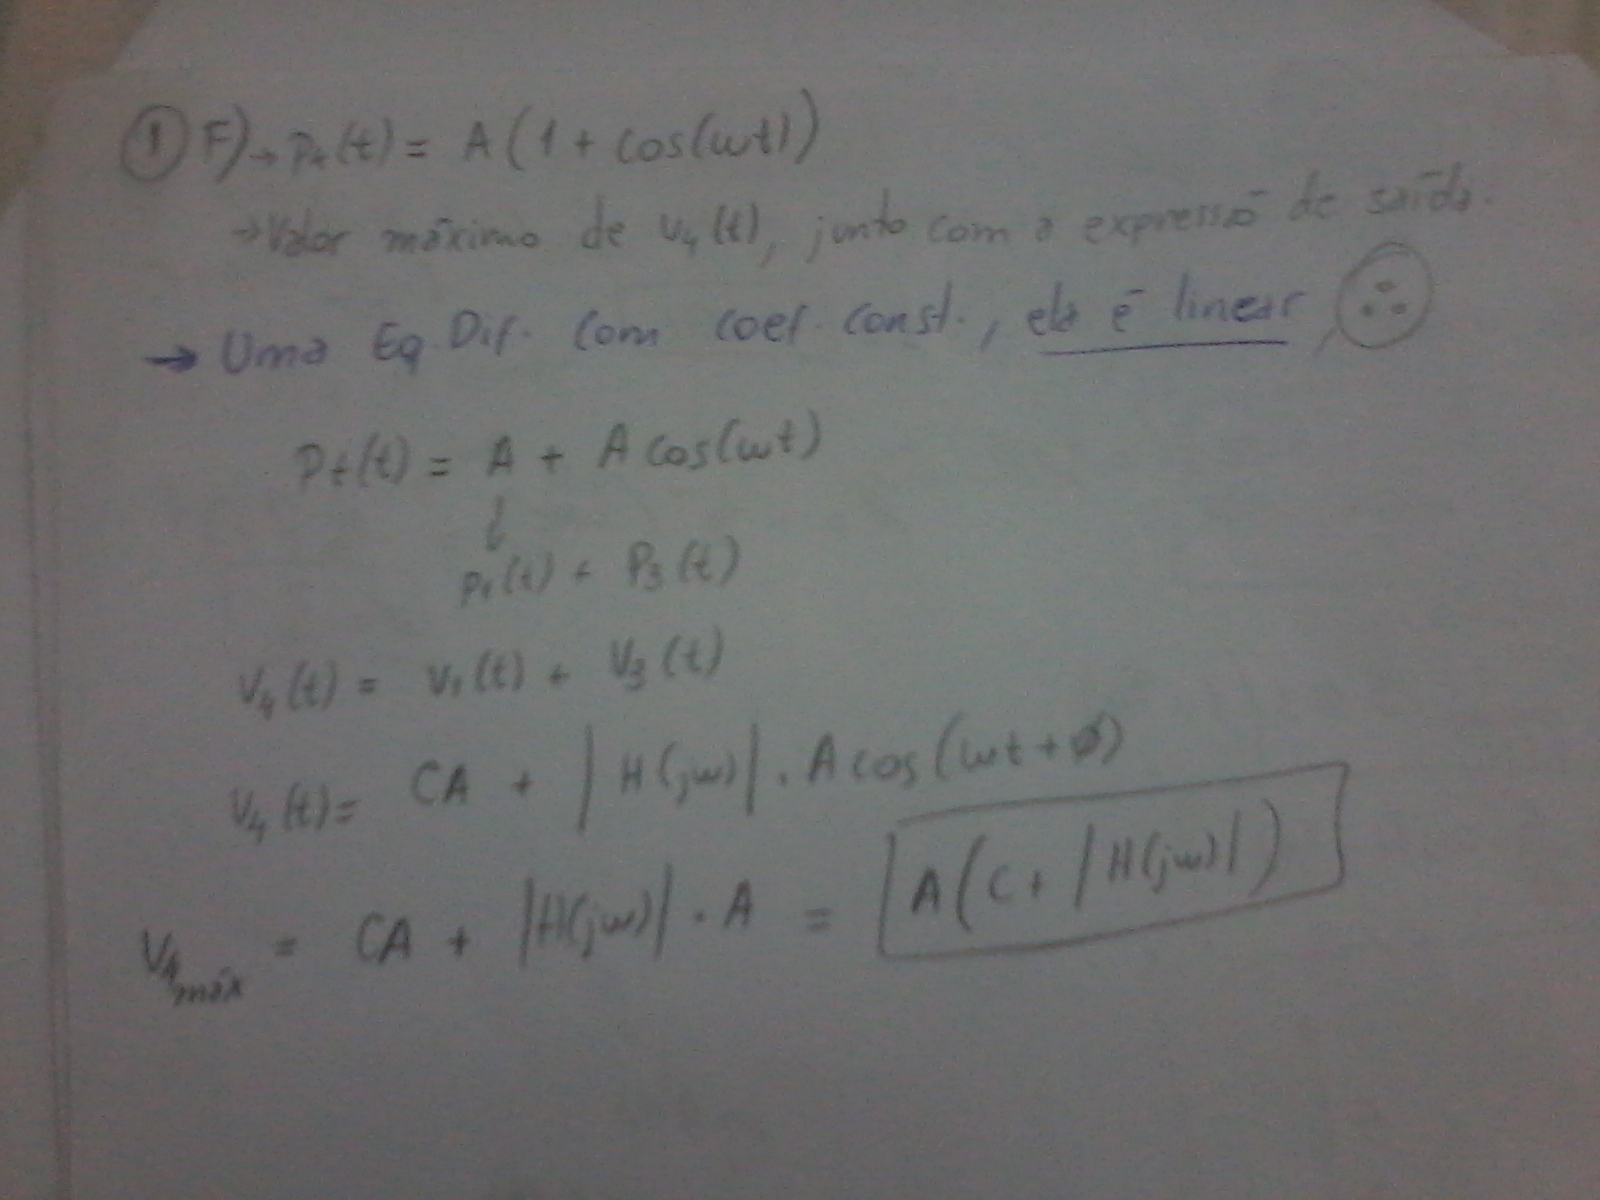 ① F) → p4(t) = A(1 + cos(ωt))
→ Valor máximo de v4(t), junto com a expressão de saída.
→ Uma Eq. Dif. com coef. const., ela é linear, ∴
p4(t) = A + A cos(ωt)
p1(t) + p3(t)
v4(t) = v1(t) + v3(t)
v4(t) = CA + |H(jω)| . A cos(ωt + ø)
v4,máx = CA + |H(jω)| . A = A(C + |H(jω)|)